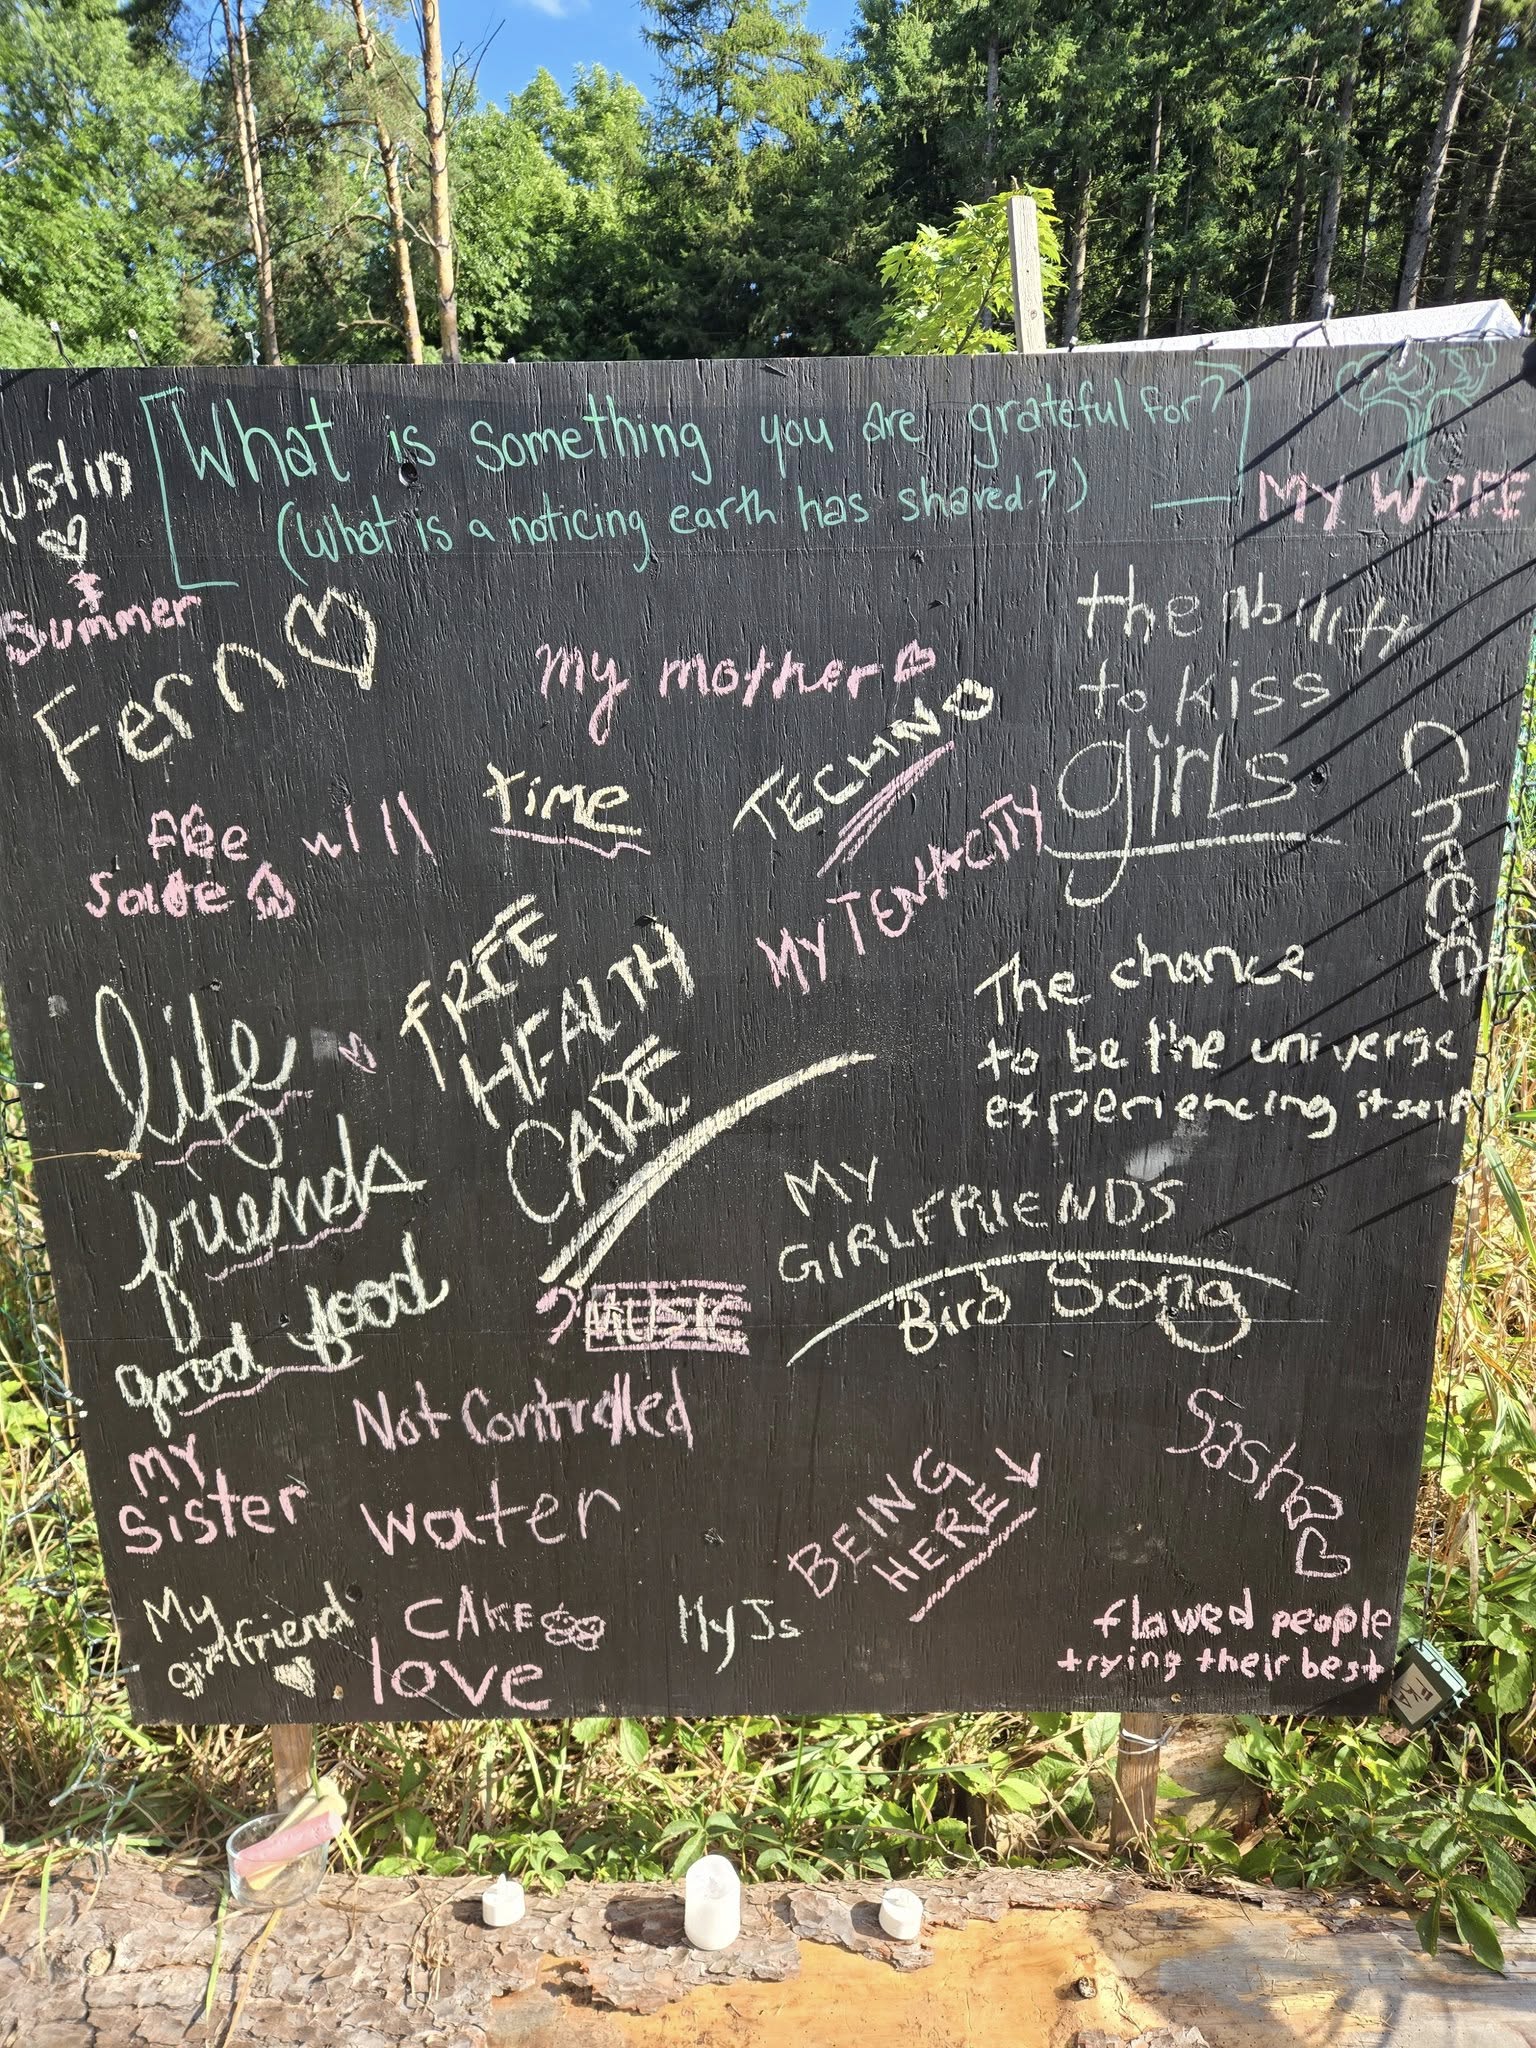 What is something you are grateful for?
(What is a noticing earth has shared?)
MY WIFE
ustin
Summer
Fern
my mother
the ability
to kiss
girls
TECHNO
time
will
MY TENACITY
Cheese
FREE
HEALTH
CARE
The chance
to be the universe
experiencing itself
life
friends
good food
MY
GIRLFRIENDS
Bird Song
MUSIC
Not Controlled
MY
Sister
water
BEING
HERE
Sasha
My
girlfriend
CAKE
love
My Js
flawed people
trying their best